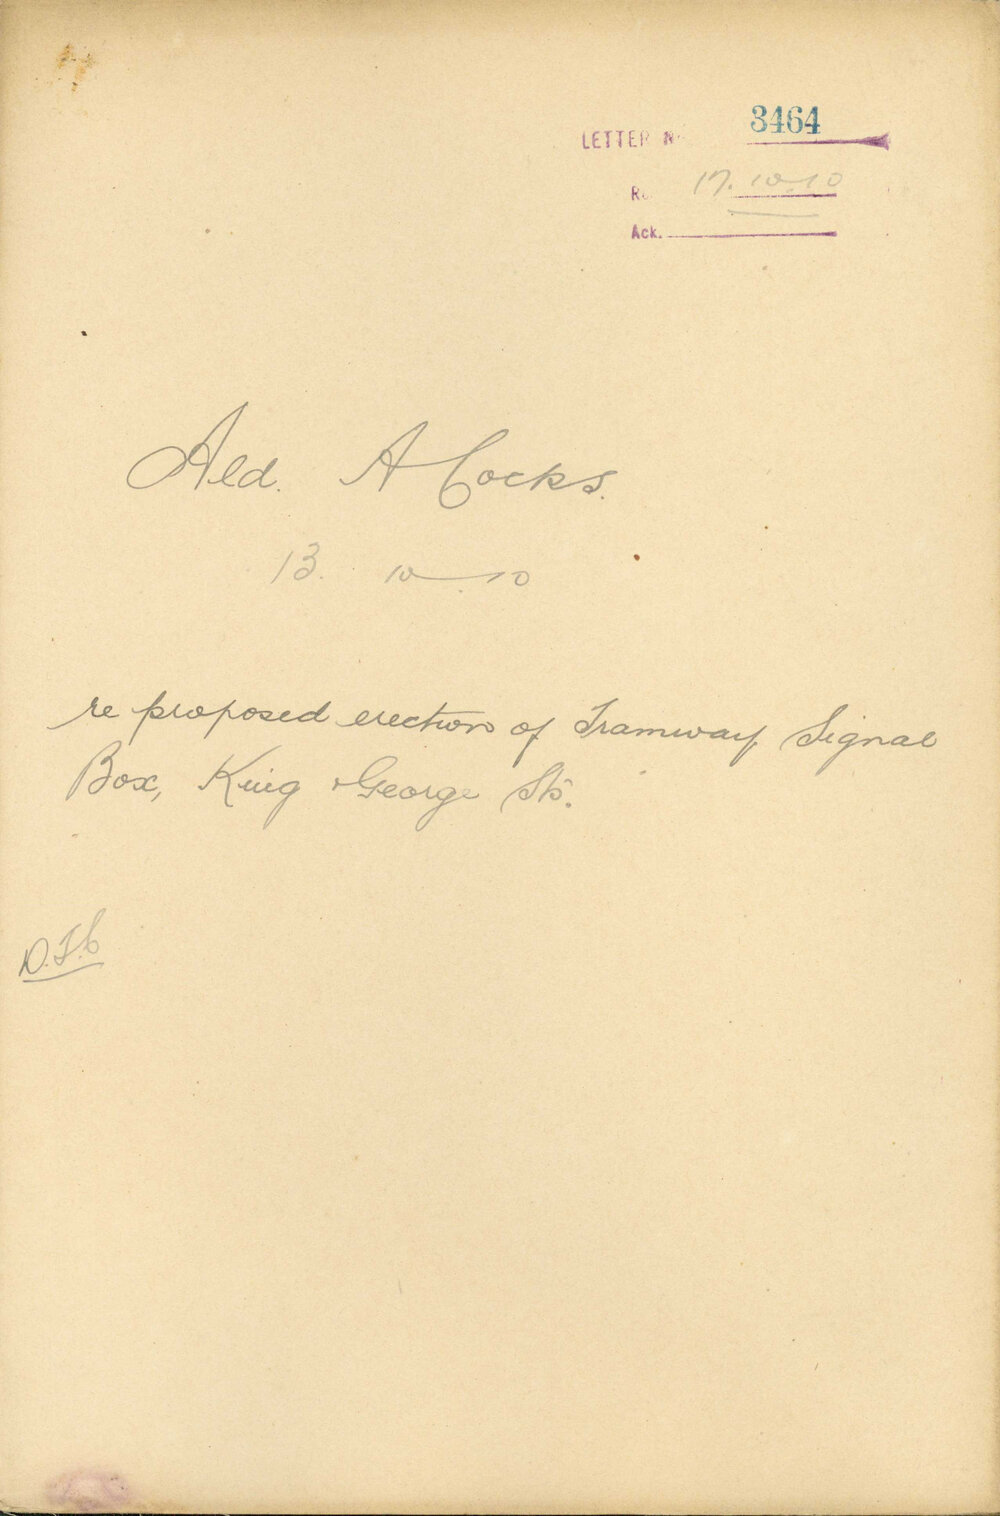 LETTER No 3464
Re 17.10.10
Ack.
Ald. A Cocks.
13. 10 10
re proposed erection of Tramway Signal
Box, King & George Sts.
D.T.C